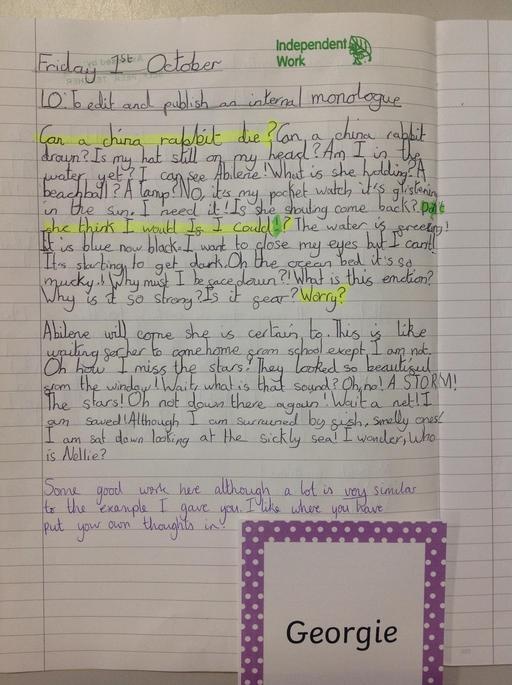 Independent
Work
Friday 1st October
LO: To edit and publish an internal monologue
Can a china rabbit die? Can a china rabbit
drown? Is my hat still on my head? Am I in the
water yet? I can see Abilene! What is she holding? A
beachball? A lamp? NO, it's my pocket watch, it's glistening
in the sun. I need it! Is she shouting come back? Don't
she think I would Is I could!? The water is green!
It is blue now black. I want to close my eyes but I cant!
It's starting to get dark. Oh the ocean bed it's so
mucky! Why must I be face down?! What is this emotion?
Why is it so strong? Is it fear? Worry?
Abilene will come she is certain to. This is like
waiting for her to come home from school exept, I am not.
Oh how I miss the stars! They looked so beautiful
from the window! Wait, what is that sound? Oh, no! A STORM!
The stars! Oh not down there again! Wait a net! I
am saved! Although I am surruned by fish, smelly ones!
I am sat down looking at the sickly sea! I wonder, who
is Nellie?
Some good work here although a lot is very similar
to the example I gave you. I like where you have
put your own thoughts in!
Georgie